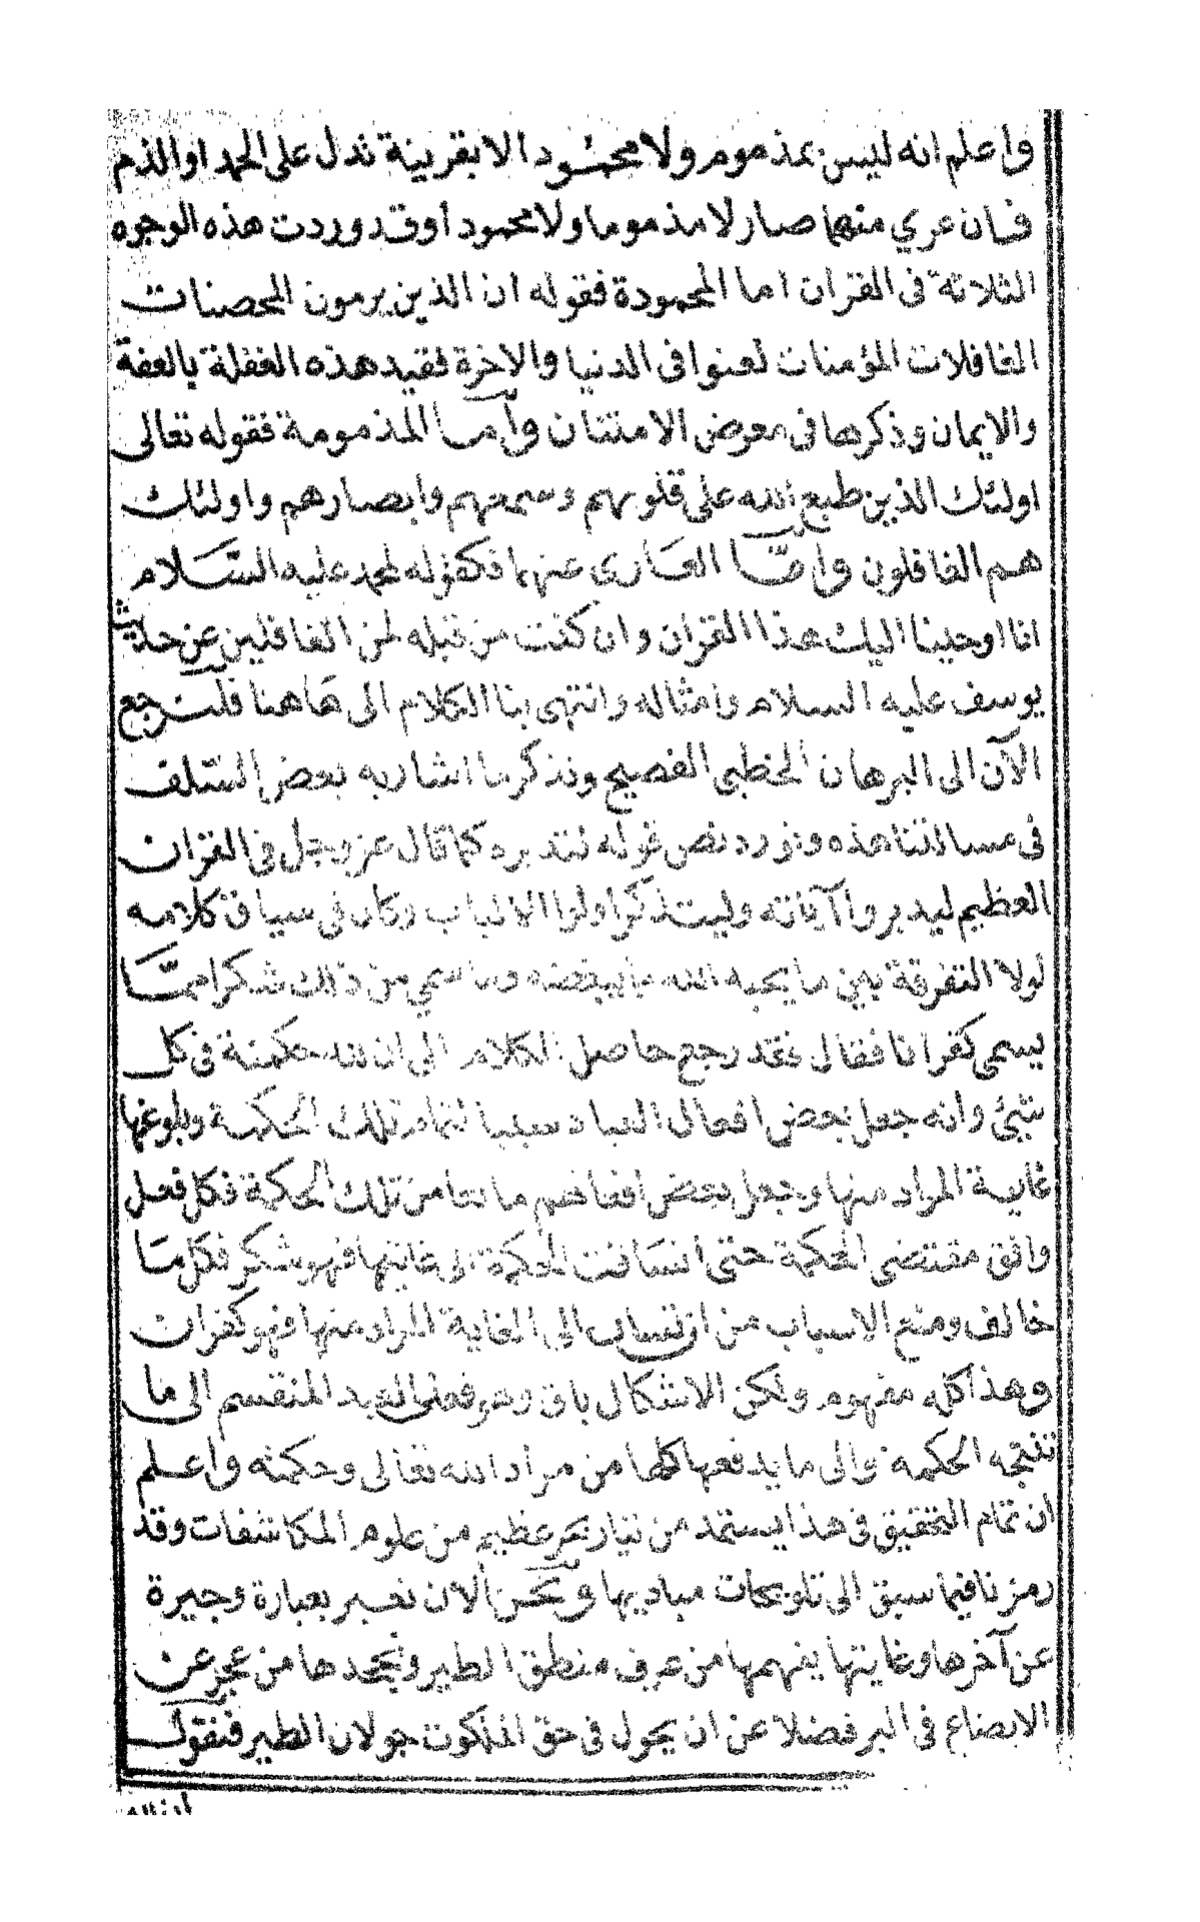 واعلم انه ليس بمذموم ولا محمود الا بقرينة تدل على الحمد او الذم
فان عري منهما صار لا مذموما ولا محمود أوقد وردت هذه الوجوه
الثلاثة فى القران اما المحمودة فقوله ان الذين يرمون المحصنات
الغافلات المؤمنات لعنوا فى الدنيا والاخرة فقيد هذه الغفلة بالعفة
والايمان وذكرها فى معرض الامتنان وأما المذمومة فقوله تعالى
اولئك الذين طبع الله على قلوبهم وسمعهم وابصارهم واولئك
هم الغافلون وامّا العارى عنهما فكقوله لمحمد عليه السّلام
انا اوحينا اليك هذا القران وان كنت من قبله لمن الغافلين عن حديث
يوسف عليه السلام وامثاله وانتهى بنا الكلام الى هاهنا فلنرجع
الآن الى البرهان الخطبى الفصيح ونذكر ما اشار به بعض السّلف
فى مسالتنا هذه ونورد نص قوله لنتدبره كما قال عز وجل فى القران
العظيم ليدبروا آياته وليتذكر اولوا الالباب وكان فى سياق كلامه
لولا التفرقة بين ما يحبه الله ما يبغضه وما سمي من ذلك شكرا ممّا
يسمى كفرانا فقال فقد رجع حاصل الكلام الى ان لله حكمة فى كل
شيئ وانه جعل بعض افعال العباد سببا لتمام تلك الحكمة وبلوغها
غاية المراد منها وجعل بعض افعالهم مانعا من تلك الحكمة فكل فعل
وافق مقتضى الحكمة حتى انساقت الحكمة الى غايتها فهو شكر فكل ما
خالف ومنع الاسباب من ان تنساق الى الغاية المراد منها فهو كفران
وهذا كله مفهوم ولكن الاشكال باق وهو فعل العبد المنقسم الى ما
تنتجه الحكمة والى ما يدفعها كلها من مراد الله تعالى وحكمته واعلم
ان تمام التحقيق فى هذا يستمد من تيار بحر عظيم من علوم المكاشفات وقد
رمزنا فيما سبق الى تلويحات مباديها ونحن الان نعبر بعبارة وجيزة
عن آخرها وغايتها يفهمها من عرف منطق الطير ويجحدها من عجز عن
الايضاع فى البر فضلا عن ان يجول فى حق الملكوت جولان الطير فنقول